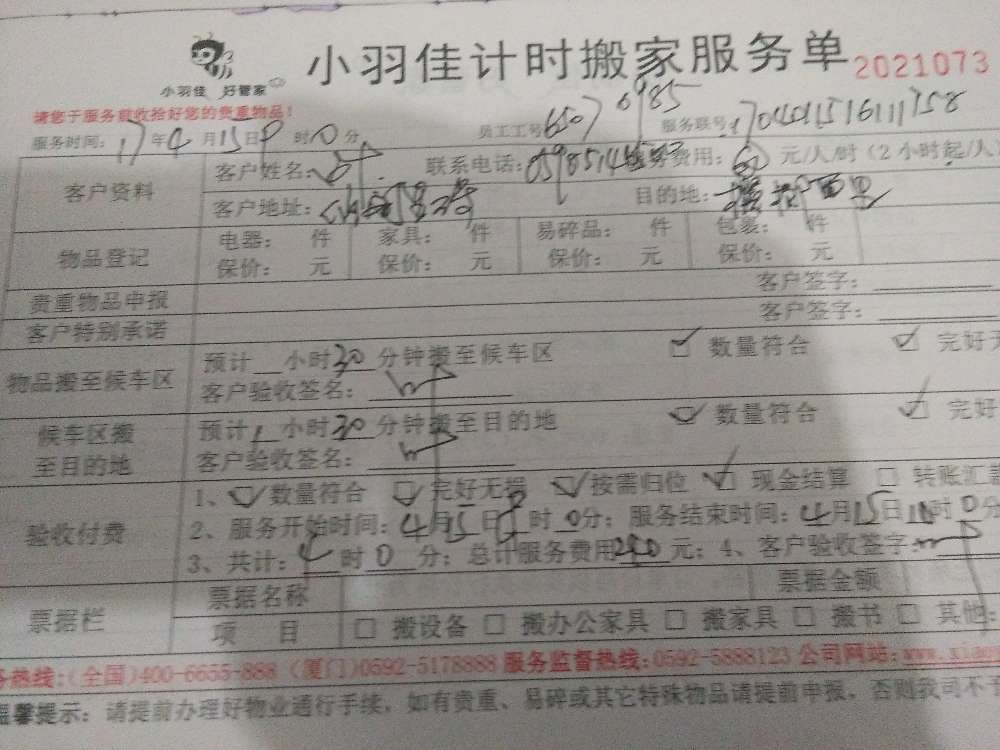 小羽佳计时搬家服务单 2021073
小羽佳 好管家
请您于服务前收拾好您的贵重物品！
服务时间：17年4月15日 时0分 员工工号 6507 6985 服务联号
客户资料 客户姓名： 联系电话： 服务费用： 元/人/时（2小时起/人）
客户地址： 目的地：
物品登记 电器： 件 家具： 件 易碎品： 件 包裹： 件
保价： 元 保价： 元 保价： 元 保价： 元
贵重物品申报 客户签字：
客户特别承诺 客户签字：
物品搬至候车区 预计 小时30分钟搬至候车区 数量符合 完好无
客户验收签名：
候车区搬至目的地 预计1小时30分钟搬至目的地 数量符合 完好
客户验收签名：
验收付费 1、 数量符合 完好无损 按需归位 现金结算 转账汇款
2、服务开始时间：4月15日 时0分；服务结束时间：4月15日 时0分
3、共计：4时0分；总计服务费用 元；4、客户验收签字：
票据栏 票据名称 票据金额
项目 搬设备 搬办公家具 搬家具 搬书 其他：
务热线：(全国)400-6655-888 (厦门)0592-5178888 服务监督热线：0592-5888123 公司网站：www.xiao
温馨提示：请提前办理好物业通行手续，如有贵重、易碎或其它特殊物品请提前申报，否则我司不予